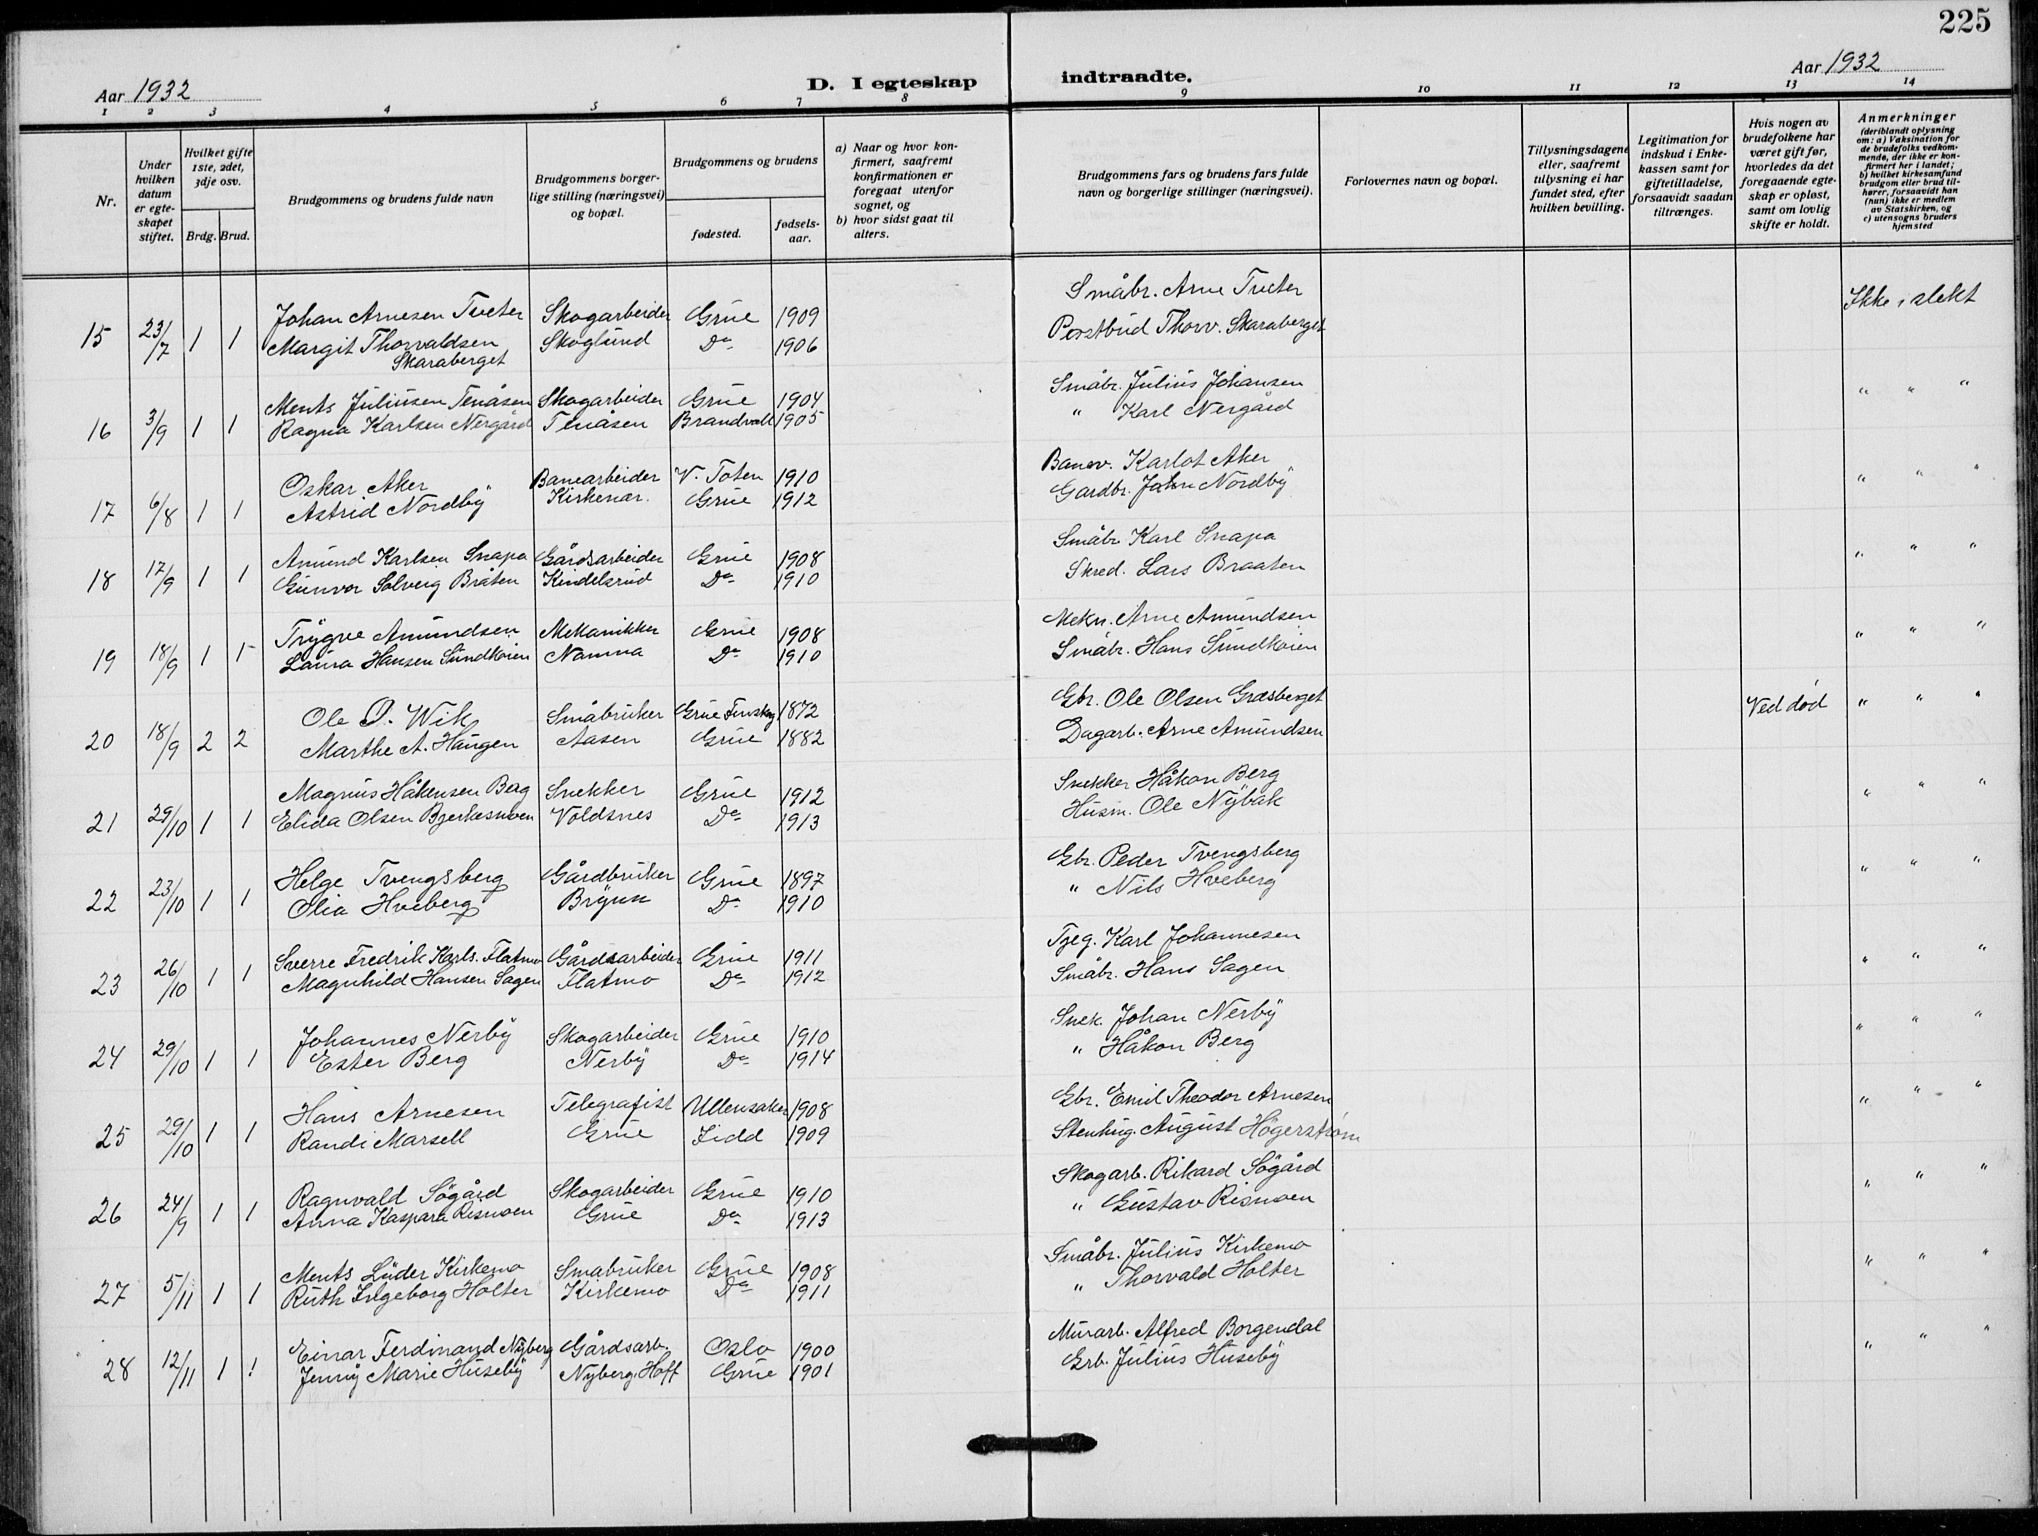 225
Aar 1932
D. I egteskap indtraadte.
Aar 1932
1 2 3 4 5 6 7 8 9 10 11 12 13 14
Nr.
Under hvilken datum er egteskapet stiftet.
Hvilket gifte 1ste, 2det, 3dje osv.
Brdg. Brud.
Brudgommens og brudens fulde navn
Brudgommens borgerlige stilling (næringsvei) og bopæl.
Brudgommens og brudens
fødested.
fødselsaar.
a) Naar og hvor konfirmert, saafremt konfirmationen er foregaat utenfor sognet, og
b) hvor sidst gaat til alters.
Brudgommens fars og brudens fars fulde navn og borgerlige stillinger (næringsvei).
Forlovernes navn og bopæl.
Tillysningsdagene eller, saafremt tillysning ei har fundet sted, efter hvilken bevilling.
Legitimation for indskud i Enkekassen samt for giftetilladelse, forsaavidt saadan tiltrænges.
Hvis nogen av brudefolkene har været gift før, hvorledes da det foregaaende egteskap er opløst, samt om lovlig skifte er holdt.
Anmerkninger
(deriblandt oplysning om: a) Vaksination for de brudefolks vedkommende, der ikke er konfirmert her i landet; b) hvilket kirkesamfund brudgom eller brud tilhører, forsaavidt han (hun) ikke er medlem av Statskirken, og c) utensogns bruders hjemsted
15 23/7 1 1 Johan Arnesen Tveter Skogarbeider Grue 1909 Småbr. Arne Tveter Ikke i slekt
Margit Thorvaldsen Skaraberget Skoglund Do 1906 Postbud Thorv. Skaraberget
16 3/9 1 1 Ments Juliusen Tenåsen Skogarbeider Grue 1904 Småbr. Julius Johansen " " "
Ragna Karlsen Nergård Tenåsen Brandval 1905 " Karl Nergård
17 6/8 1 1 Oskar Aker Banearbeider V. Toten 1910 Banev. Karlot Aker " " "
Astrid Nordby Kirkenær. Grue 1912 Gardbr. John Nordby
18 17/9 1 1 Amund Karlsen Snapa Gårdsarbeider Grue 1908 Småbr. Karl Snapa " " "
Gunvor Solveig Bråten Kindelsrud Do 1910 Skred. Lars Braaten
19 18/9 1 1 Trygve Amundsen Mekanikker Grue 1908 Mekn. Arne Amundsen " " "
Laura Hansen Sundkoien Namna Do 1910 Småbr. Hans Sundkoien
20 18/9 2 2 Ole P. Wik Småbruker Grue Finskog 1872 Gbr. Ole Olsen Græsberget Ved død " " "
Marthe A. Haugen Aasen Grue 1882 Dagarb. Arne Amundsen
21 29/10 1 1 Magnus Håkensen Berg Snekker Grue 1912 Snekker Håkon Berg " " "
Elida Olsen Bjerkesmoen Voldsnes Do 1913 Husm. Ole Nybak
22 23/10 1 1 Helge Tvengsberg Gårdbruker Grue 1897 Gbr. Peder Tvengsberg " " "
Olia Hveberg Do 1910 " Nils Hveberg
23 26/10 1 1 Sverre Fredrik Karls. Flatmo Gårdsarbeider Grue 1911 Karl Johannesen " " "
Magnhild Hansen Sagen Flatmo Do 1912 Småbr. Hans Sagen
24 29/10 1 1 Johannes Nerby Skogarbeider Grue 1910 Snek. Johan Nerby " " "
Ester Berg Nerby Do 1914 " Håkon Berg
25 29/10 1 1 Hans Arnesen Telegrafist Ullensaker 1908 Gbr. Emil Theodor Arnesen " " "
Randi Marsell Grue 1909 Stenhug. August Högerström
26 24/9 1 1 Ragnvald Sögård Skogarbeider Grue 1910 Skogarb. Rikard Sögård " " "
Anna Kaspara Rismoen Grue Do 1913 " Gustav Rismoen
27 5/11 1 1 Ments Lüder Kirkemo Smabruker Grue 1908 Småbr. Julius Kirkemo " " "
Ruth Ingeborg Holter Kirkemo Do 1911 " Thorvald Holter
28 12/11 1 1 Einar Ferdinand Nyberg Gårdsarb. Oslo 1900 Murarb. Alfred Borgendal " " "
Jenny Marie Huseby Nyberg, Hoff Grue 1901 Grb. Julius Huseby